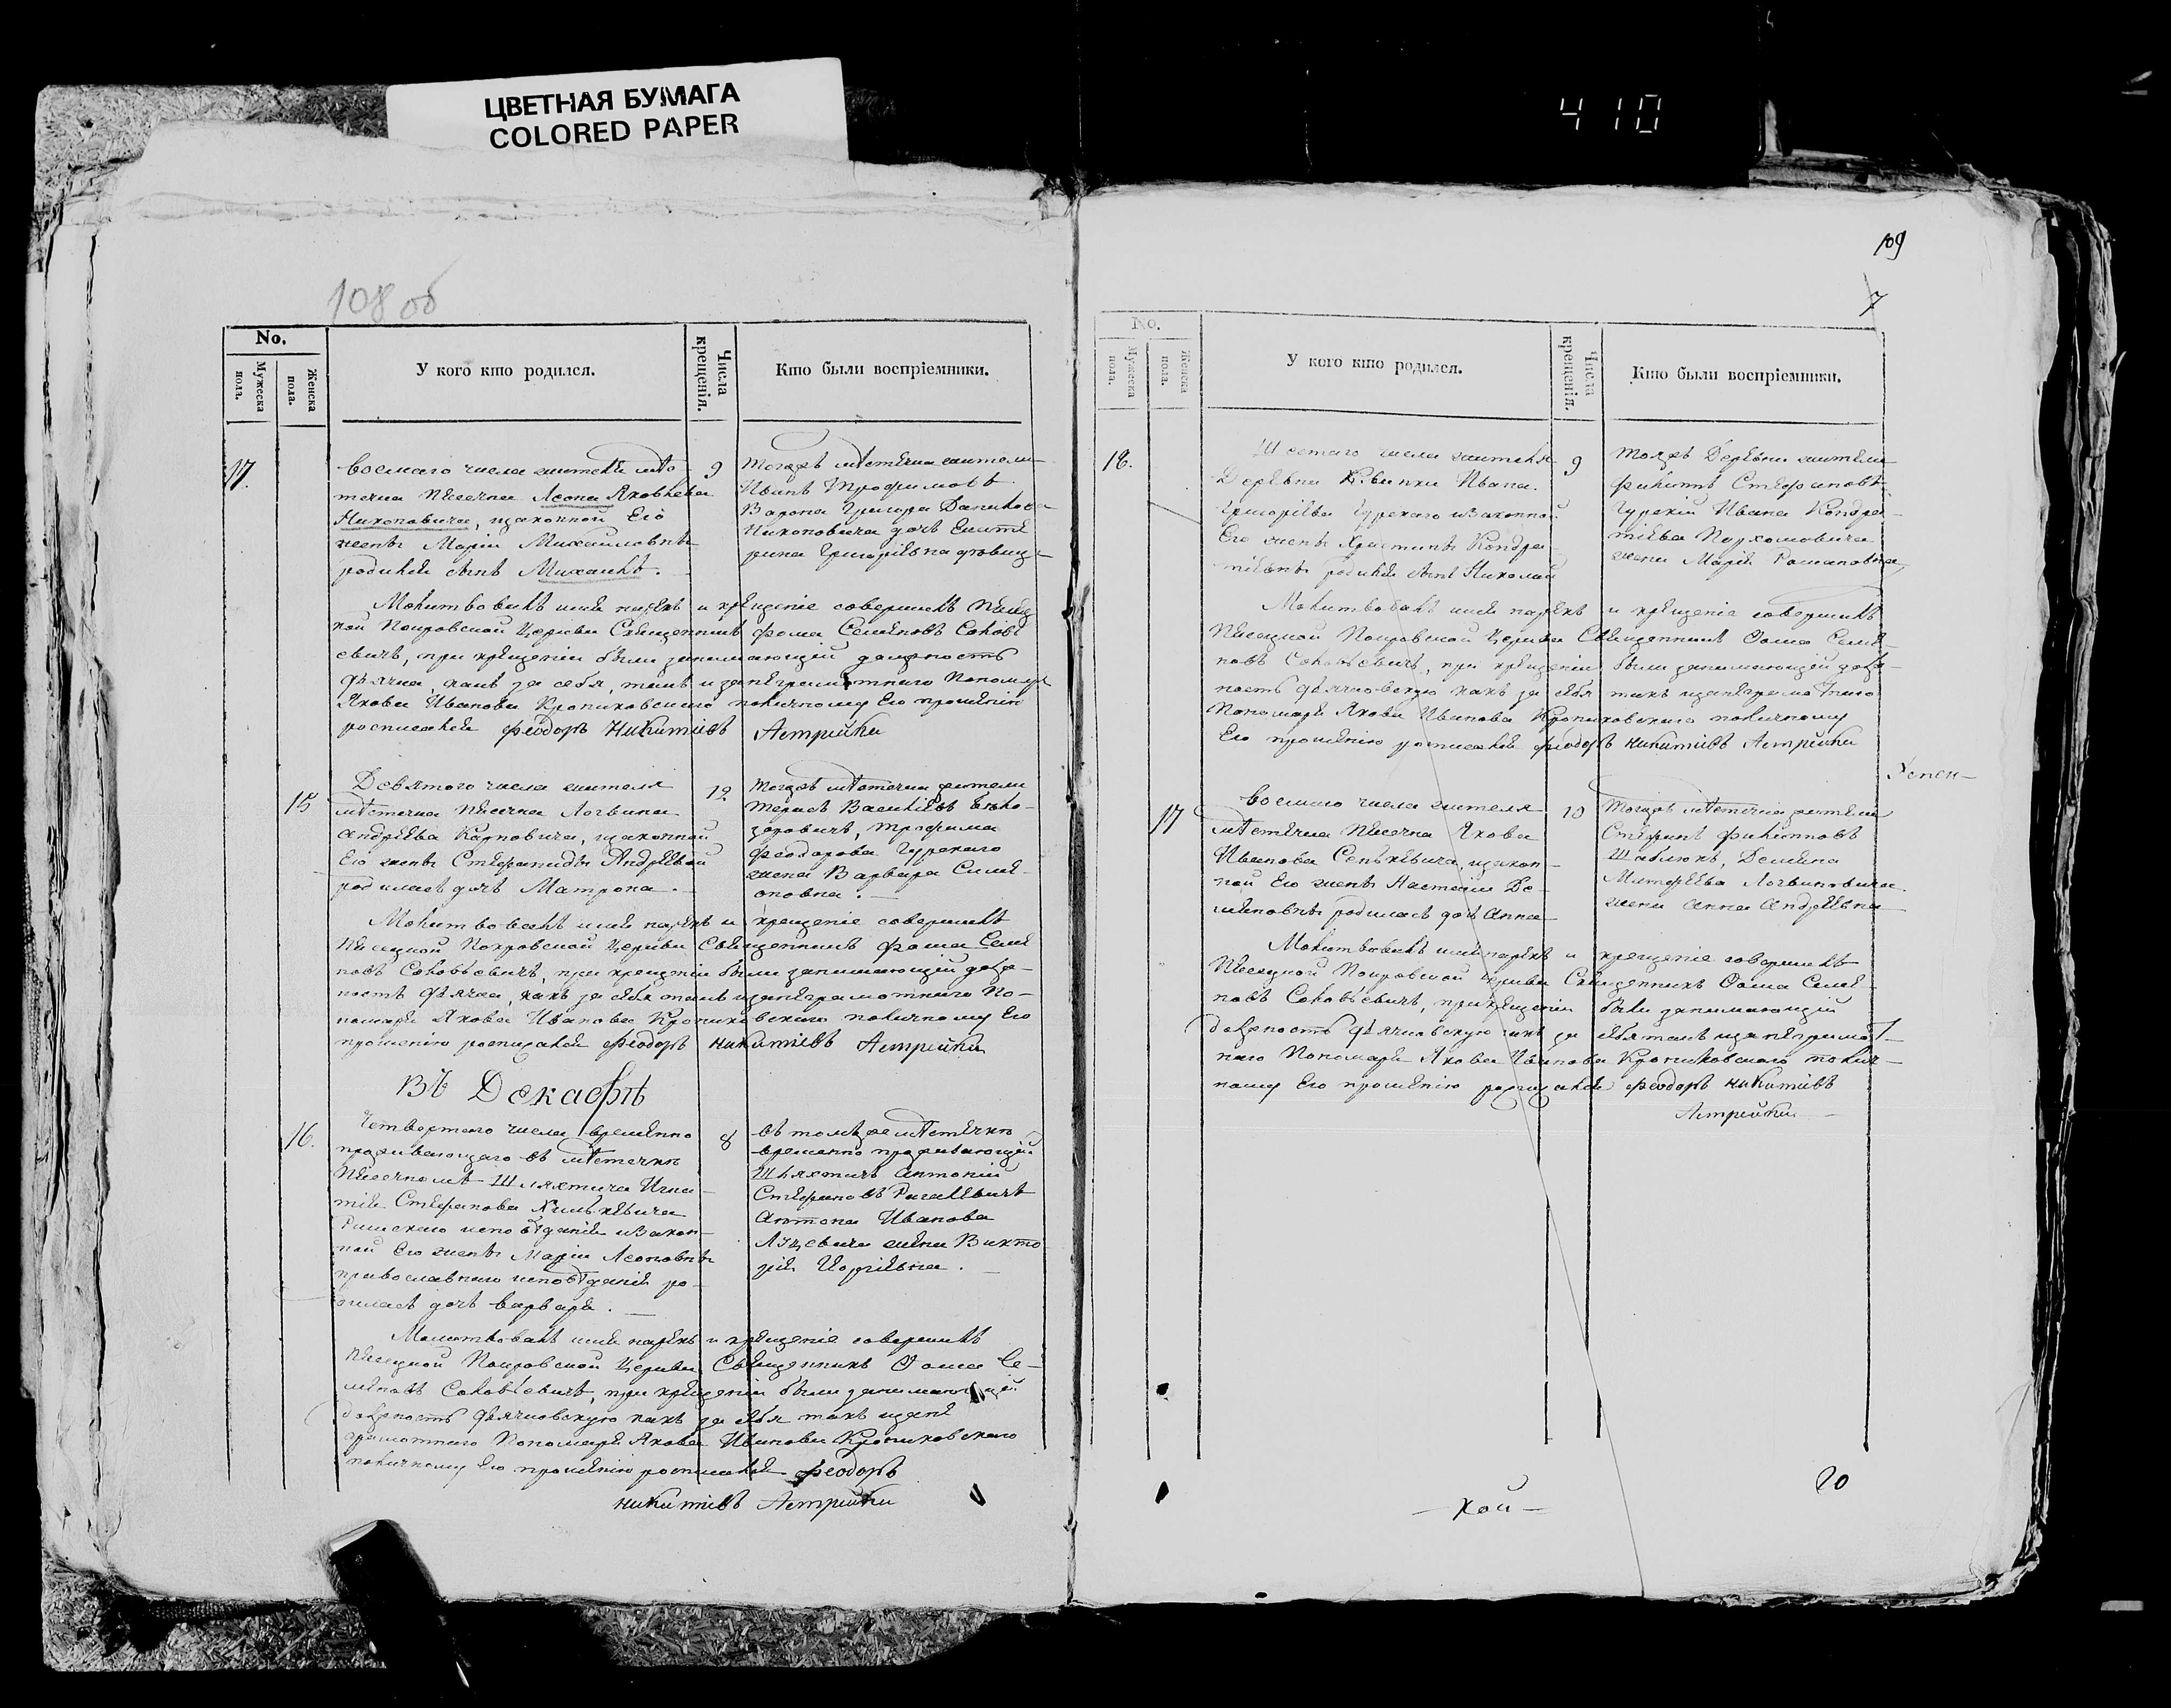 ЦВЕТНАЯ БУМАГА
COLORED PAPER
410
108 об
No.
Мужеска пола.
Женска пола.
У кого кто родился.
Числа крещенія.
Кто были воспріемники.
17.
восмаго числа жителя мѣс
течка Песечна Леона Яковлева
Никоновича, изаконной Его
жены Маріи Михаиловны
родился сынъ Михаилъ.
9
тогожъ мѣстечка жители
Иванъ Трофимовъ
Григора
Никоновича дочь Екате
рина Григоріевна дѣвица
Молитвовалъ имя нарекъ и крещеніе совершилъ Песец
кой Покровской Церкви Священникъ Фома Семеновъ Соловь
евичъ, при крещеніи были занимающій должность
дьячка, какъ за себя, такъ и занеграмотнаго Пономаря
Якова Иванова Кропиховскаго поличному Его прошенію
росписался Феодоръ Никитинъ Астрейко
15
Девятого числа жителя
мѣстечка Песечна Логвина
Андреева Карповича, изаконной
Его жены Стефаниды Андреевой
родилась дочь Матрона.
12
тогожъ мѣстечка жители
Василіевъ
Трофима
Феодорова Гурскаго
жена Варвара Симе
оновна.
Молитвовалъ имя нарекъ и крещеніе совершилъ
Песецкой Покровской Церкви Священникъ Фома Семе
новъ Соловьевичъ, при крещеніи были занимающій долж
ность дьячка, какъ за себя такъ изанеграмотнаго По-
номаря Якова Иванова Кропиховскаго поличному Его
прошенію росписался Феодоръ Никитинъ Астрейко
Въ Декабрѣ
16.
Четвертого числа временно
проживающаго въ мѣстечкѣ
Песечномъ Шляхтича Игна
тія Стефанова
Римскаго исповѣданія изакон-
ной Его жены Маріи Леоновны
православнаго исповѣданія ро-
дилась дочь варвара.
8
въ томъ же мѣстечкѣ
временно проживающій
Шляхтичъ Антоній
Стефановъ
Антона Иванова
жена Викто
рія
Молитвовалъ имя нарекъ и крещеніе совершилъ
Песецкой Покровской Церкви Священникъ Фома Се-
меновъ Соловьевичъ, при крещеніи были занимающій
должность дьячковскую какъ за себя такъ изане
грамотнаго Пономаря Якова Иванова Кропиховскаго
поличному Его прошенію росписался Феодоръ
Никитинъ Астрейко
109
7
No.
Мужеска пола.
Женска пола.
У кого кто родился.
Числа крещенія.
Кто были воспріемники.
18.
Шестаго числа жителя
Деревни Ивана
Григоріева Гурскаго изаконной
Его жены Христины Кондра
тіевны родился сынъ Николай
9
тояжъ Деревни жители
Филиппъ Стефановъ
Гурскій Ивана Кондра-
тіева Пархомовича
жена Марія Романовна
Молитвовалъ имя нарекъ и крещеніе совершилъ
Песецкой Покровской Церкви Священникъ Фома Семе
новъ Соловьевичъ, при крещеніи были занимающій долж
ность дьячковскую какъ за себя такъ изанеграмотнаго
Пономаря Якова Иванова Кропиховскаго поличному
Его прошенію росписался Феодоръ Никитинъ Астрейко
17
восмаго числа жителя
мѣстечка Песечна Якова
Иванова Сенкевича, изакон-
ной Его жены Настасіи Се-
меновны родилась дочь Анна
10
тогожъ мѣстечка жители
Стефанъ Филипповъ
Шаблюкъ, Демяна
Матфеева Логвиновича
жена Анна Андреевна
Молитвовалъ имя нарекъ и крещеніе совершилъ
Песецкой Покровской Церкви Священникъ Фома Семе
новъ Соловьевичъ, при крещеніи были занимающій
должность дьячковскую какъ за себя такъ изанеграмот-
наго Пономаря Якова Иванова Кропиховскаго полич-
ному Его прошенію росписался Феодоръ Никитинъ
Астрейко
— кой —